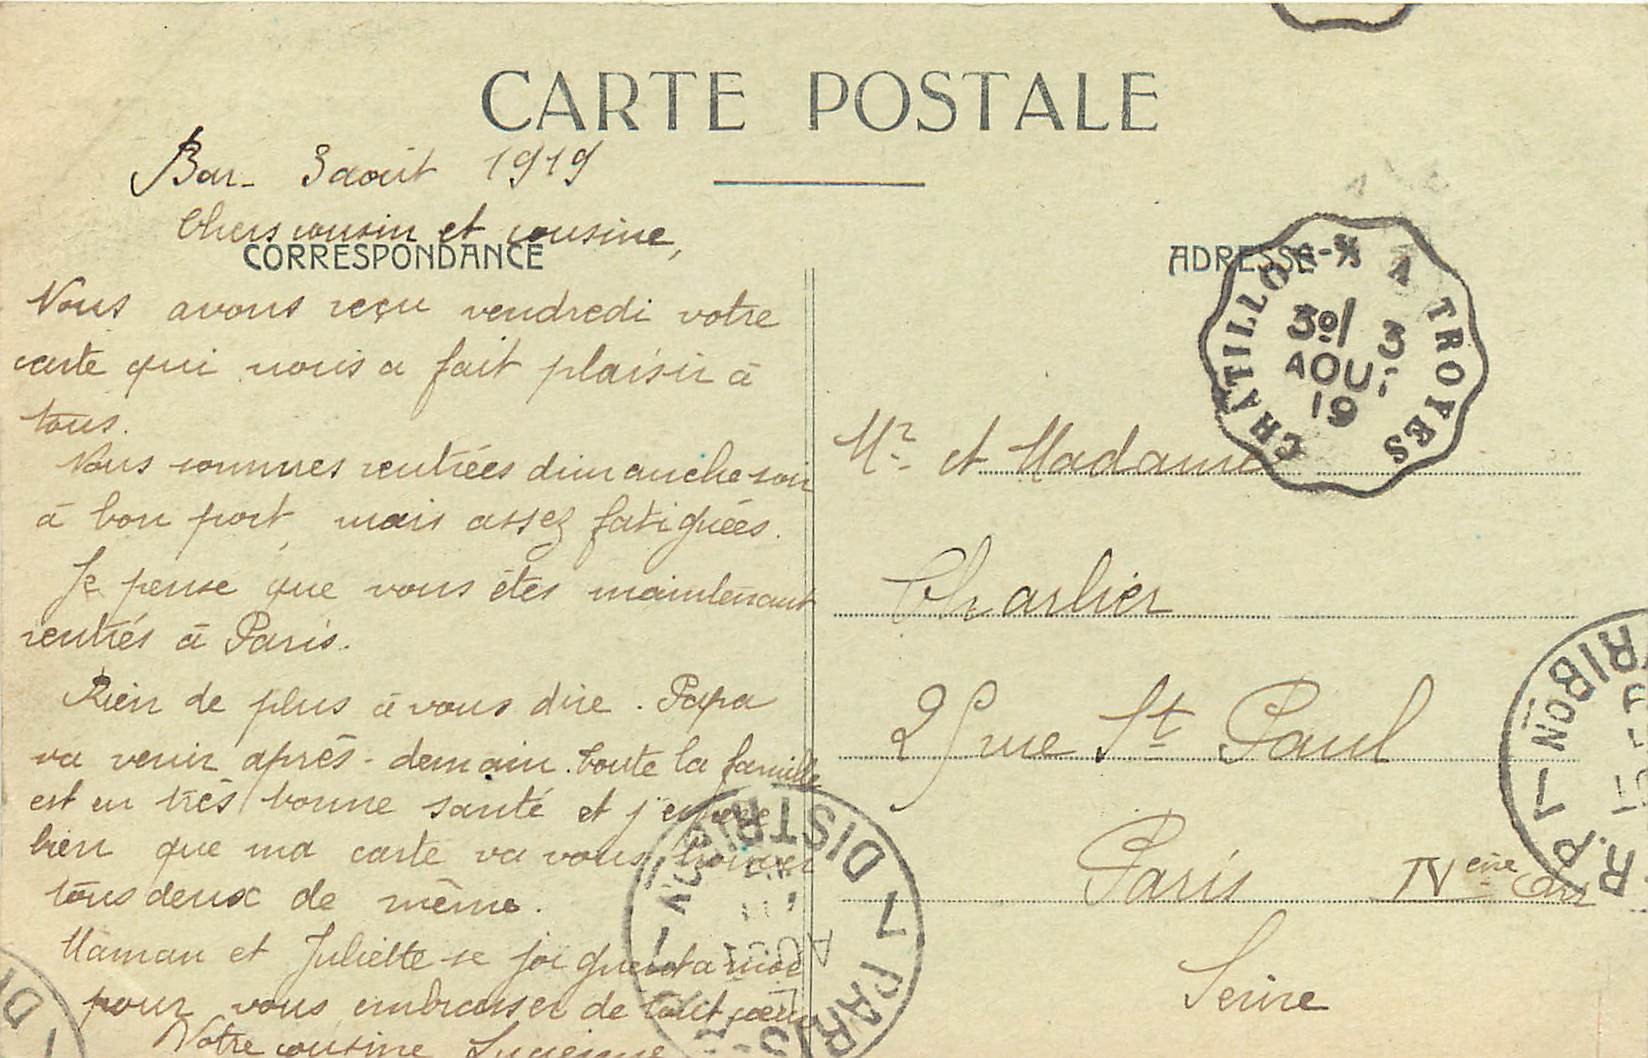 CARTE POSTALE
Bar- 3 août 1919
Chers cousin et cousine,
CORRESPONDANCE
Nous avons reçu vendredi votre
carte qui nous a fait plaisir à
tous.
Nous sommes rentrées dimanche soir
à bon port, mais assez fatiguées.
Je pense que vous êtes maintenant
rentrés à Paris.
Rien de plus à vous dire. Papa
va venir après-demain. Toute la famille
est en très bonne santé et j'espère
bien que ma carte va vous trouver
tous deux de même.
Maman et Juliette se joignent à moi
pour vous embrasser de tout cœur
Votre cousine Lucienne
ADRESSE
CHATILLON-S/S A TROYES
3º/ 3
AOUT
19
Mr. et Madame
Charlier
25 rue St Paul
Paris IVème Arr
Seine
PARIS
DISTRIBON
R.P
DISTRIBON
DI